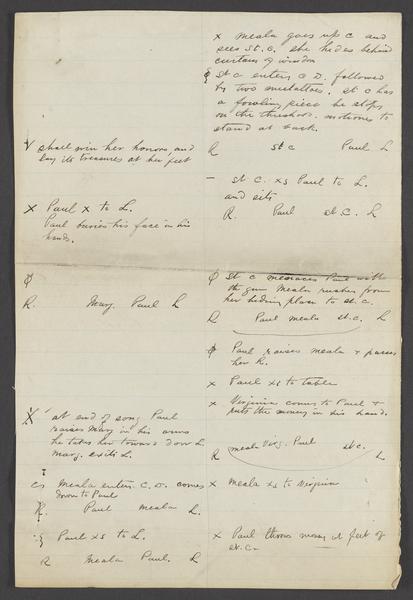 x shall win her honors and
lay its treasures at her feet
X Paul x to L.
Paul buries his face in his
hands.
ϕ
R. Marg. Paul L
X at end of song Paul
raises Marg in his arms
he takes her toward door L.
Marg. exits L.
Meala enters C. D. comes
down to Paul
R. Paul Meala L.
Paul xs to L.
R Meala Paul. L
x Meala goes up C and
sees St. C. she hides behind
curtains of window
ϕ St C enters C D. followed
by two mulattoes. St C has
a fowling piece he stops
on the threshold. motions to
stand at back.
R St C Paul L
– St. C. xs Paul to L.
and sits
R. Paul St. C. L
ϕ St C menaces Paul with
the gun Meala rushes from
her hiding place to St. C.
R Paul Meala St. C. L
ϕ Paul raises Meala + passes
her R.
x Paul xs to table
x Virginia comes to Paul +
puts the money in his hand.
R Meala Virg. Paul St. C. L
x Meala xs to Virginia
x Paul throws money at feet of
St. C.